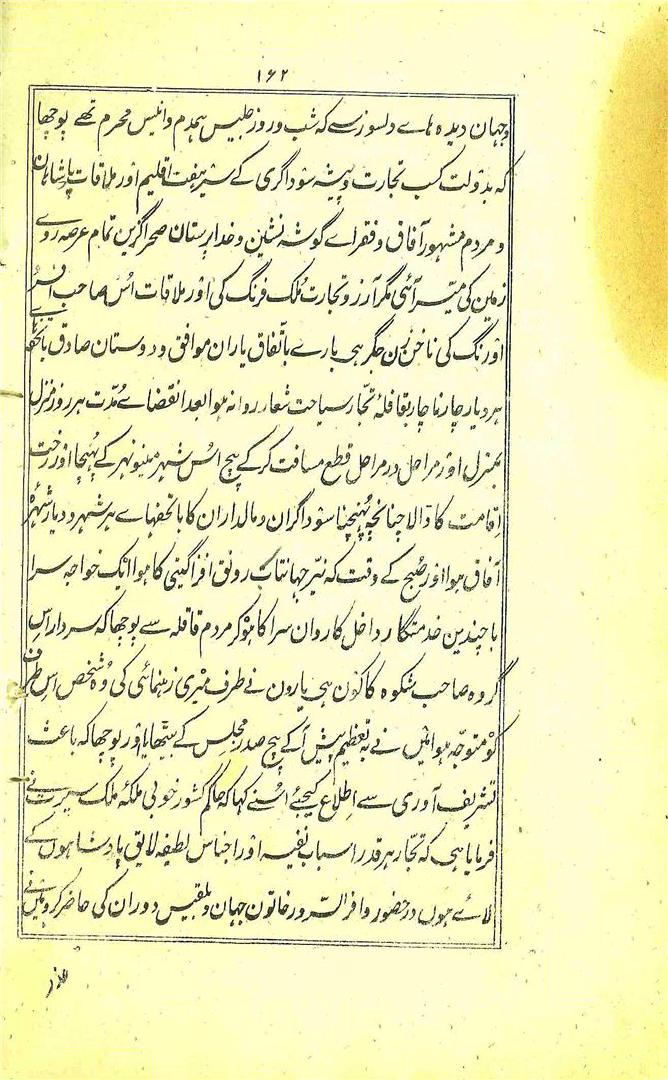 ۱۶۲
وجہان دیدہ ہاے دلسوز سے کہ شب وروز جلیس ہمدم وانیس محرم تھے پوچھا
کہ بدولت کسب تجارت وپیشہ سوداگری کے سیر ہفت اقلیم اور ملاقات پادشاہان
ومردم مشہور آفاق وفقراے گوشہ نشین وخداپرستان صحراگزین تمام عرصہ روے
زمین کی میسر آئی مگر آرزو تجارت ملک فرنگ کی اور ملاقات اس صاحب افسر
اورنگ کی ناخن زن جگر ہی بارے باتفاق یاران موافق ودوستان صادق باتحفہاے
ہر دیار چار ناچار بقافلہ تجار سیاحت شعار روانہ ہوا بعد انقضاے مدت ہر روز منزل
بمنزل اور مراحل در مراحل قطع مسافت کر کے بیچ اس شہر مینو نہر کے پہنچا اور رخت
اقامت کا ڈالا چنانچہ پہنچنا سوداگران ومالداران کا باتحفہاے ہر شہر ودیار شہرہ
آفاق ہوا اور صبح کے وقت کہ نیر جہانتاب رونق افزا گیتی کا ہوا ایک خواجہ سرا
با چندین خدمتگار داخل کاروان سرا کا ہو کر مردم قافلہ سے پوچھا کہ سردار اس
گروہ صاحب شکوہ کا کون ہی یارون نے طرف میری رہنمائی کی وہ شخص اس طرف
کو متوجہ ہوا میں نے بہ تعظیم پیش آ کے بیچ صدر مجلس کے بیٹھایا اور پوچھا کہ باعث
تشریف آوری سے اطلاع کیجیے اسنے کہا کہ حاکم کشور خوبی ملکۂ ملک سیرت نے
فرمایا ہی کہ تجار ہر قدر اسباب نفیسہ اور اجناس لطیفہ لایق پادشاہوں کے
لائے ہوں در حضور وافر السرور خاتون جہان وبلقیس دوران کی حاضر کرو میں نے
عذر